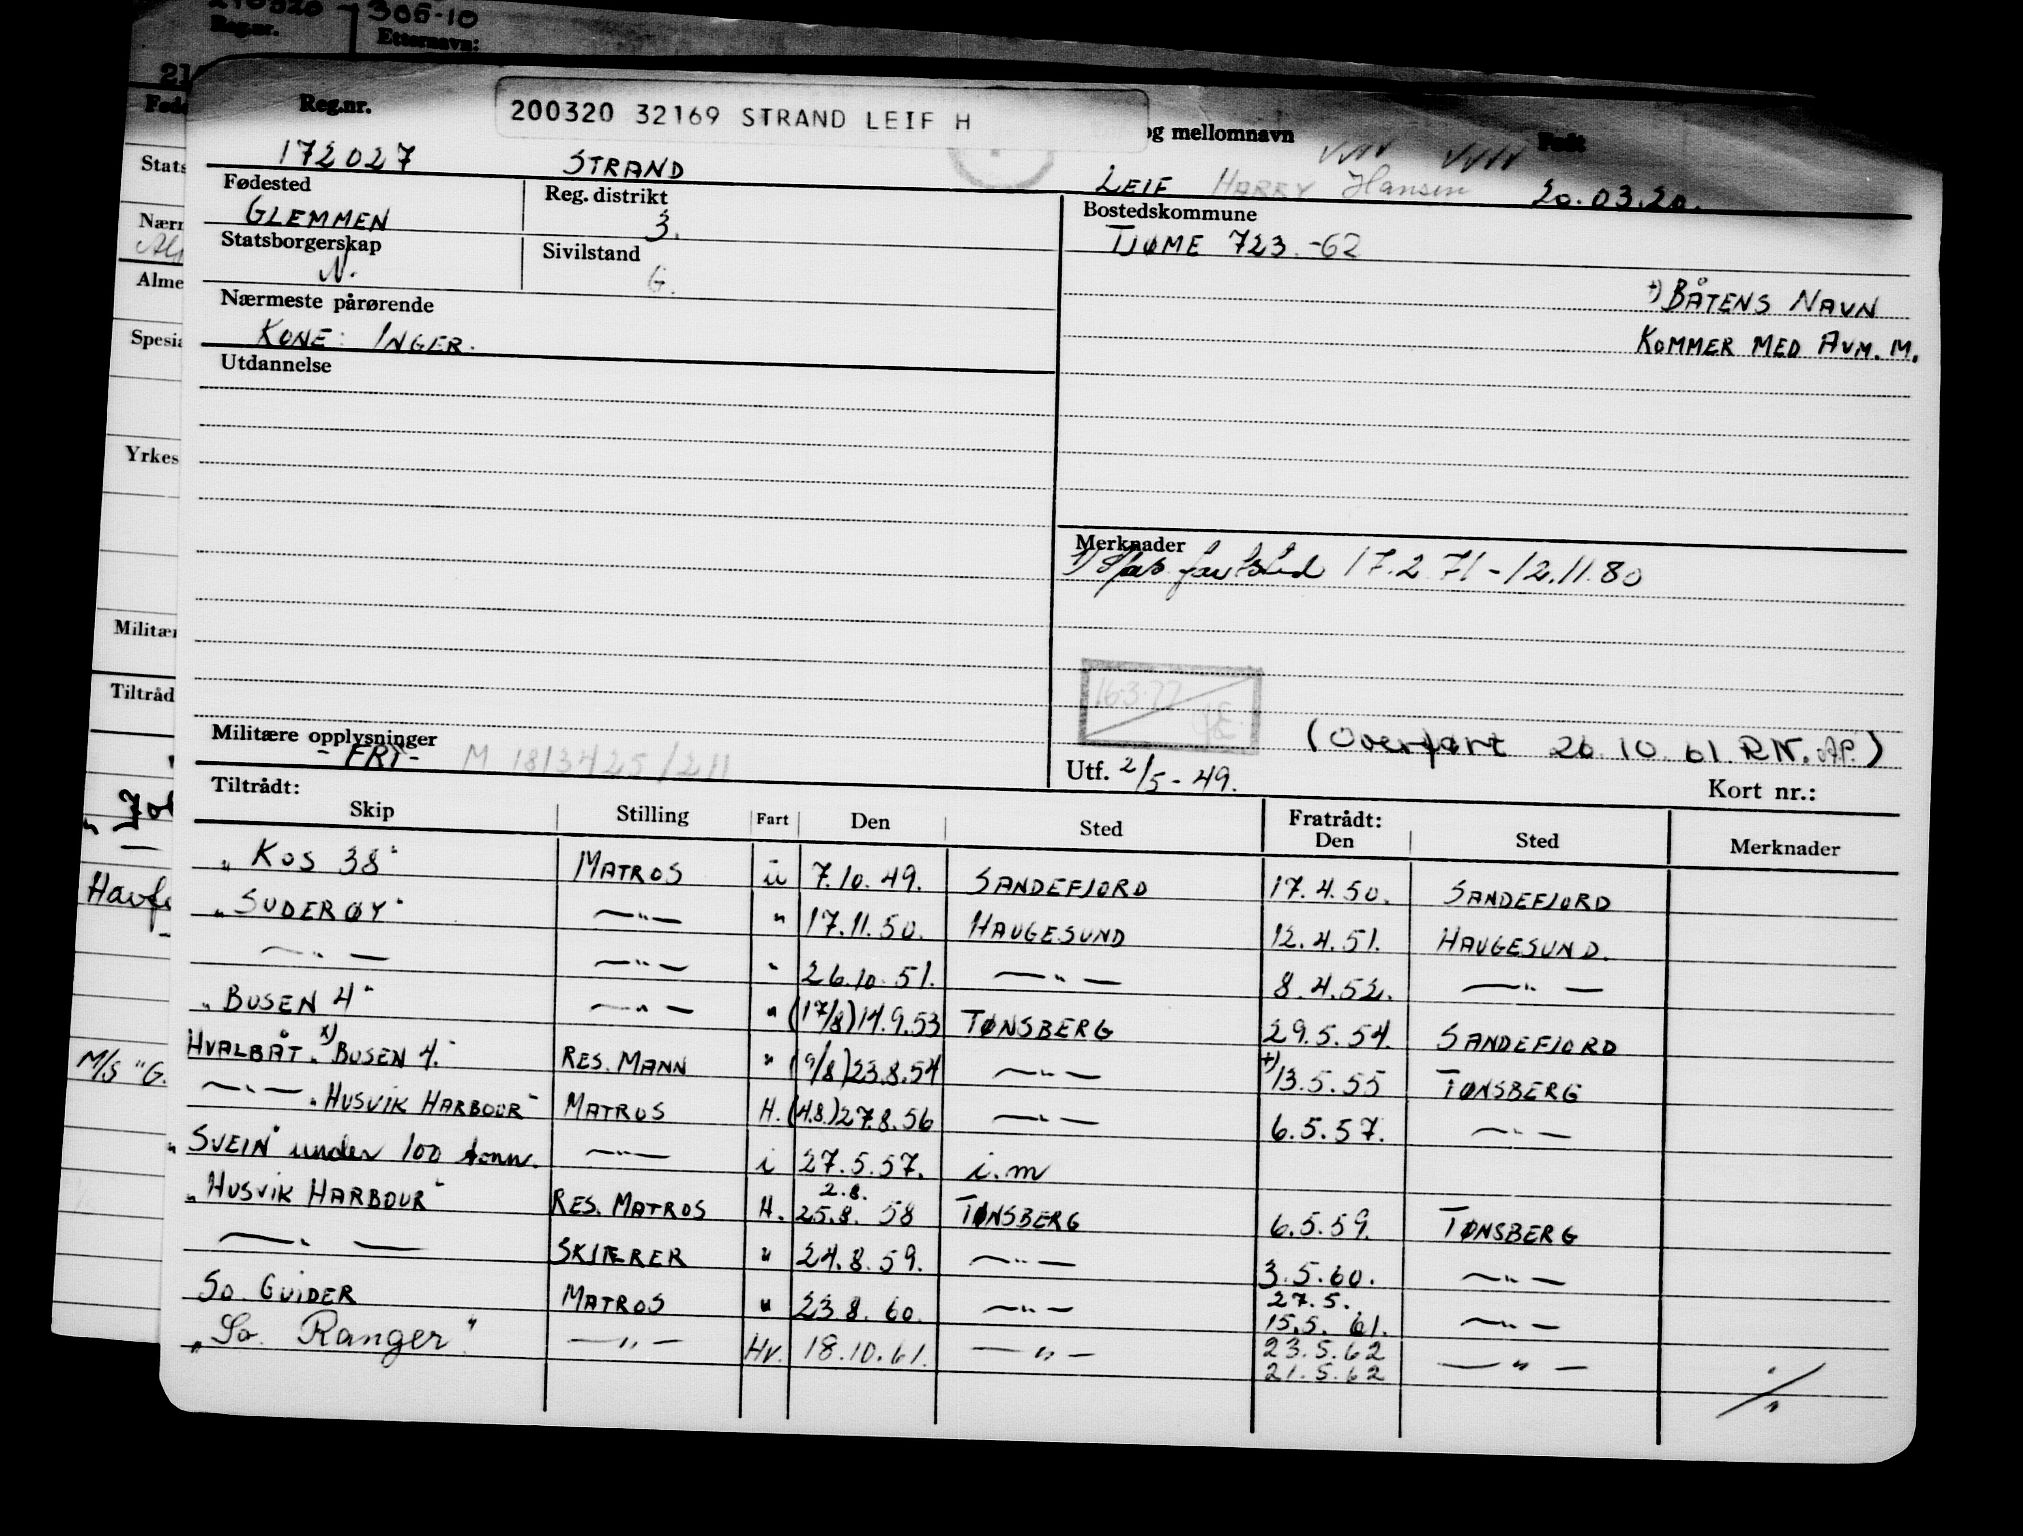 305-10
Reg.nr. Etternavn:
Reg.nr. 200320 32169 STRAND LEIF H og mellomnavn Født
172027 STRAND LEIF HARRY Hansen 20.03.20.
Fødested Reg. distrikt Bostedskommune
GLEMMEN 3. TJØME 723.-62
Statsborgerskap Sivilstand
N. G.
+) BÅTENS NAVN
Nærmeste pårørende
KONE: INGER. KOMMER MED AVM. M.
Utdannelse
Merknader
17.2 71 - 12.11.80
16.3.77
(Overført 26.10.61. RN. AP.)
Militære opplysninger
- FRI - M 1813425/211
Utf. 2/5-49. Kort nr.:
Tiltrådt: Fratrådt:
Skip Stilling Fart Den Sted Den Sted Merknader
"KOS 38" MATROS u 7.10.49. SANDEFJORD 17.4.50. SANDEFJORD
"SUDERØY" —"— " 17.11.50. HAUGESUND 12.4.51. HAUGESUND.
—"— —"— " 26.10.51. —"— 8.4.52. —"—
"BUSEN 4" —"— " (17/8) 14.9.53 TØNSBERG 29.5.54. SANDEFJORD
HVALBÅT. x) "BUSEN 4." RES. MANN " (9/8) 23.8.54 —"— +) 13.5.55 TØNSBERG
—"— "HUSVIK HARBOUR" MATROS H. (4.8.) 27.8.56 —"— 6.5.57. —"—
"SVEIN" under 100 tonn. —"— i 27.5.57. i.m
"HUSVIK HARBOUR" RES. MATROS H. 2.8. 25.8. 58 TØNSBERG 6.5.59. TØNSBERG
—"— SKIÆRER " 24.8.59. —"— 3.5.60. —"—
SO. GUIDER MATROS " 23.8.60. —"— 27.5. 15.5. 61. —"—
"So. Ranger" —"— Hv. 18.10.61. —"— 23.5.62 21.5.62 —"—